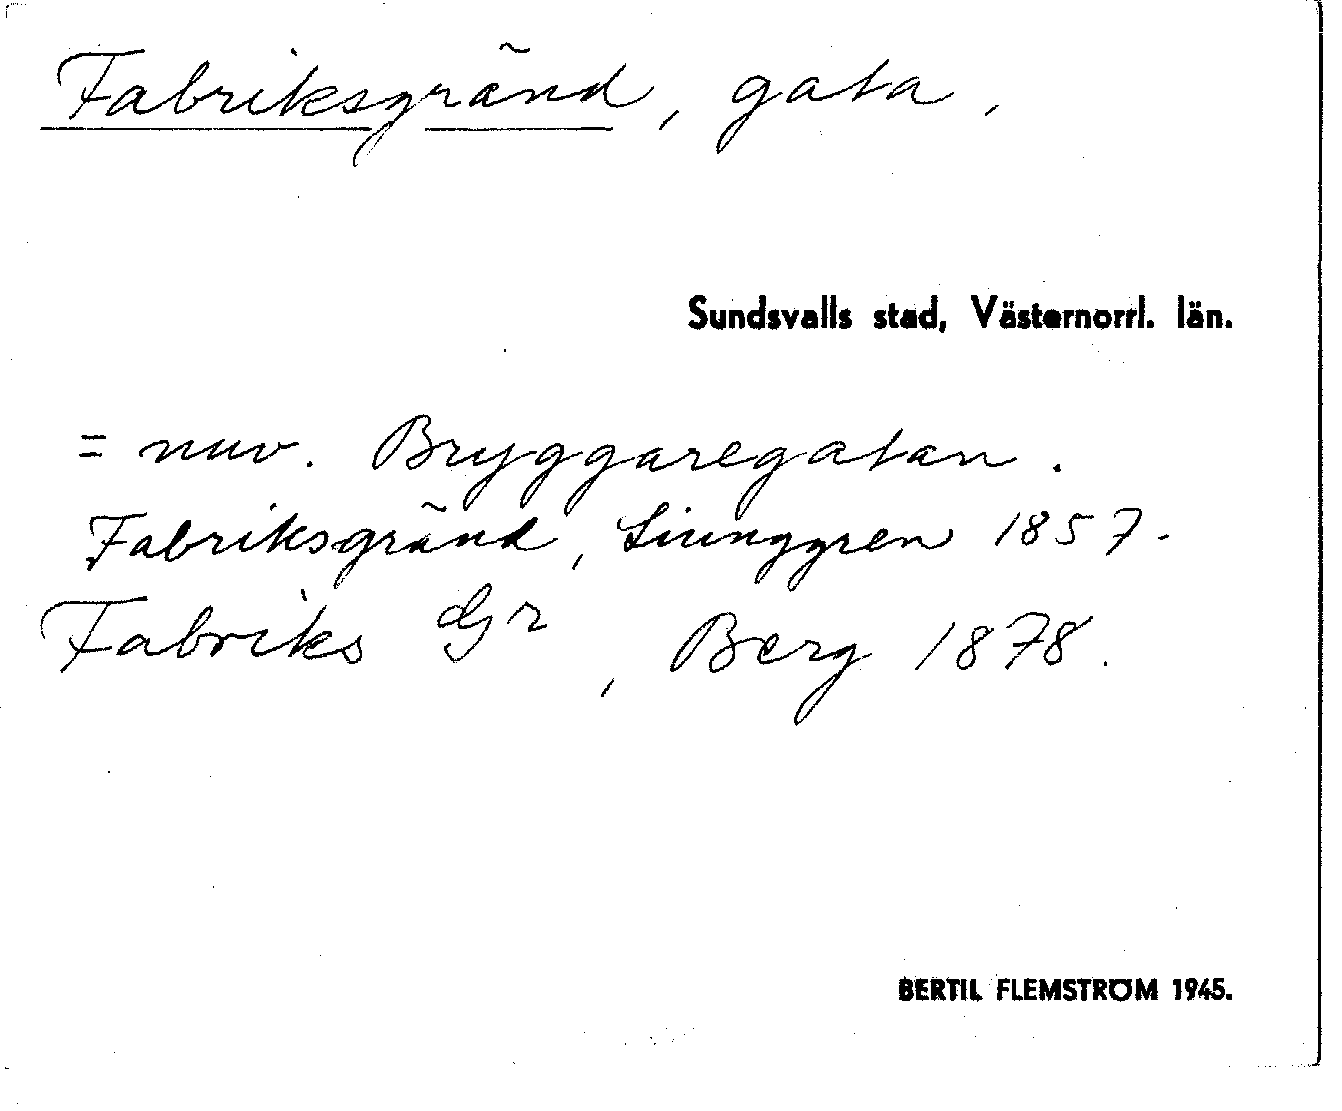 Fabriksgränd, gata,
Sundsvalls stad, Västernorrl. län.
= nuv. Bryggaregatan.
Fabriksgränd, Liunggren 1857.
Fabriks Gr, Berg 1878.
BERTIL FLEMSTRÖM 1945.